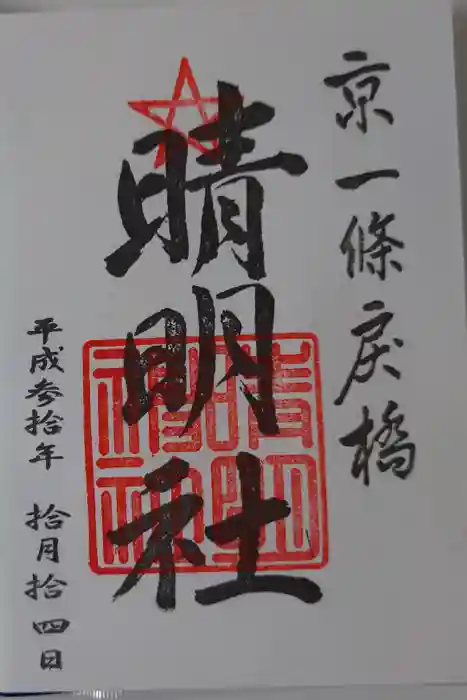 京一條戻橋
晴明社
平成参拾年 拾月拾四日